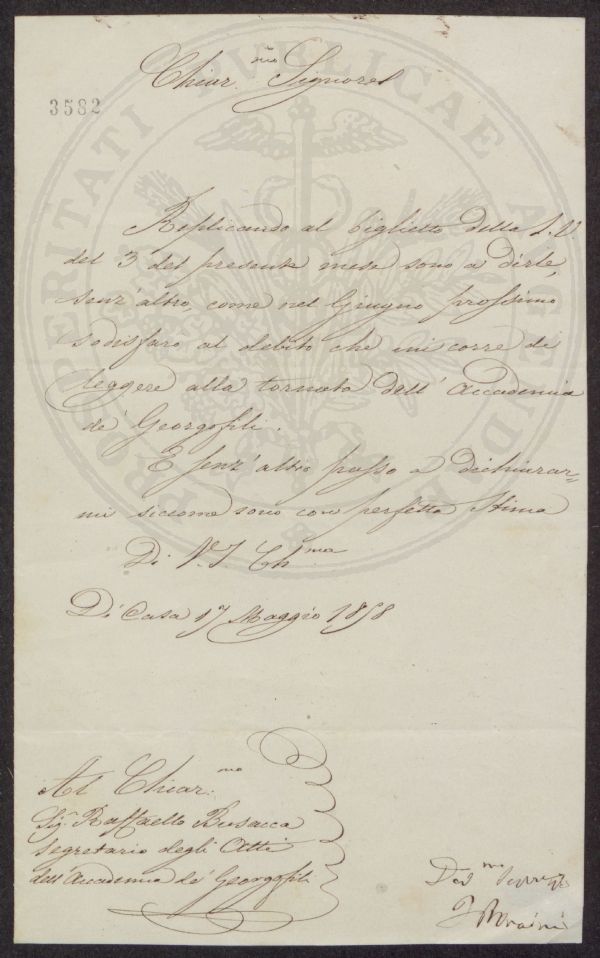 Chiar.mo Signore
3582
PROSPERITATI PUBLICAE AUGENDAE
Replicando al biglietto della S.V
del 3 del presente mese sono a dirle,
senz'altro, come nel Giugno prossimo
sodisfaro al debito che mi corre di
leggere alla tornata dell'Accademia
de' Georgofili.
E senz'altro passo a dichiarar=
mi siccome sono con perfetta stima
Di V.S. Ch.ma
Di Casa 17 Maggio 1858
Al Chiar.mo
Sig.r Raffaello Busacca
segretario degli Atti
dell'Accademia de' Georgofili
Dev.mo